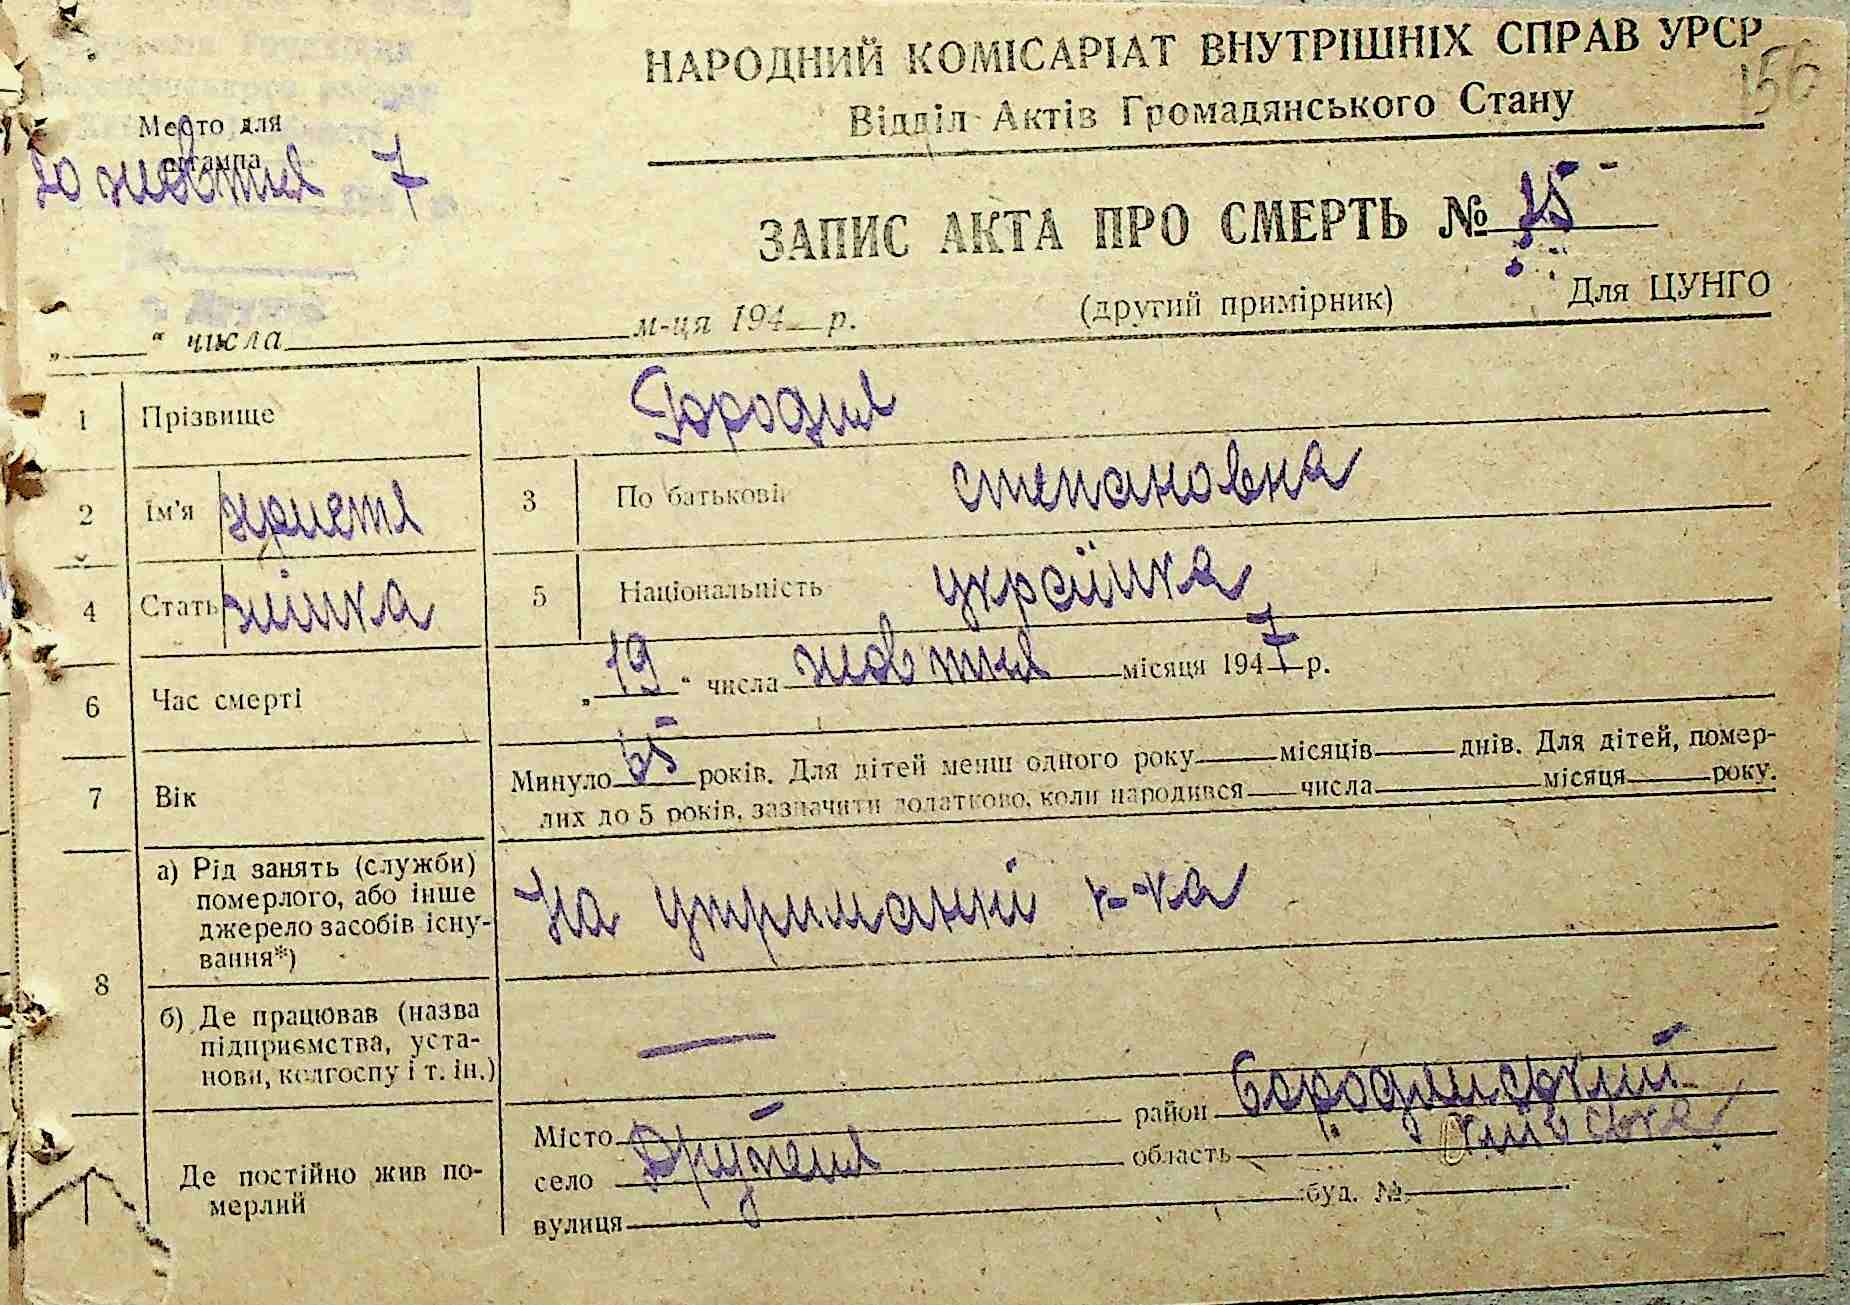 НАРОДНИЙ КОМІСАРІАТ ВНУТРІШНІХ СПРАВ УРСР
156
Відділ Актів Громадянського Стану
Место для
штампа
20 жовтня 7
ЗАПИС АКТА ПРО СМЕРТЬ № 25
(другий примірник) Для ЦУНГО
„ “ числа м-ця 194 р.
1 Прізвище
2 Ім'я христя 3 По батькові степановна
4 Стать жінка 5 Національність українка
6 Час смерті „19“ числа жовтня місяця 1947 р.
7 Вік Минуло 65 років. Для дітей менш одного року місяців днів. Для дітей, помер-
лих до 5 років, зазначити додатково, коли народився числа місяця року.
8 а) Рід занять (служби)
померлого, або інше
джерело засобів існу-
вання*)
На утриманні к-ка
б) Де працював (назва
підприємства, уста-
нови, колгоспу і т. ін.)
—
Де постійно жив по-
мерлий
Місто район Бородянський
село Дружня область Київська
вулиця буд. №